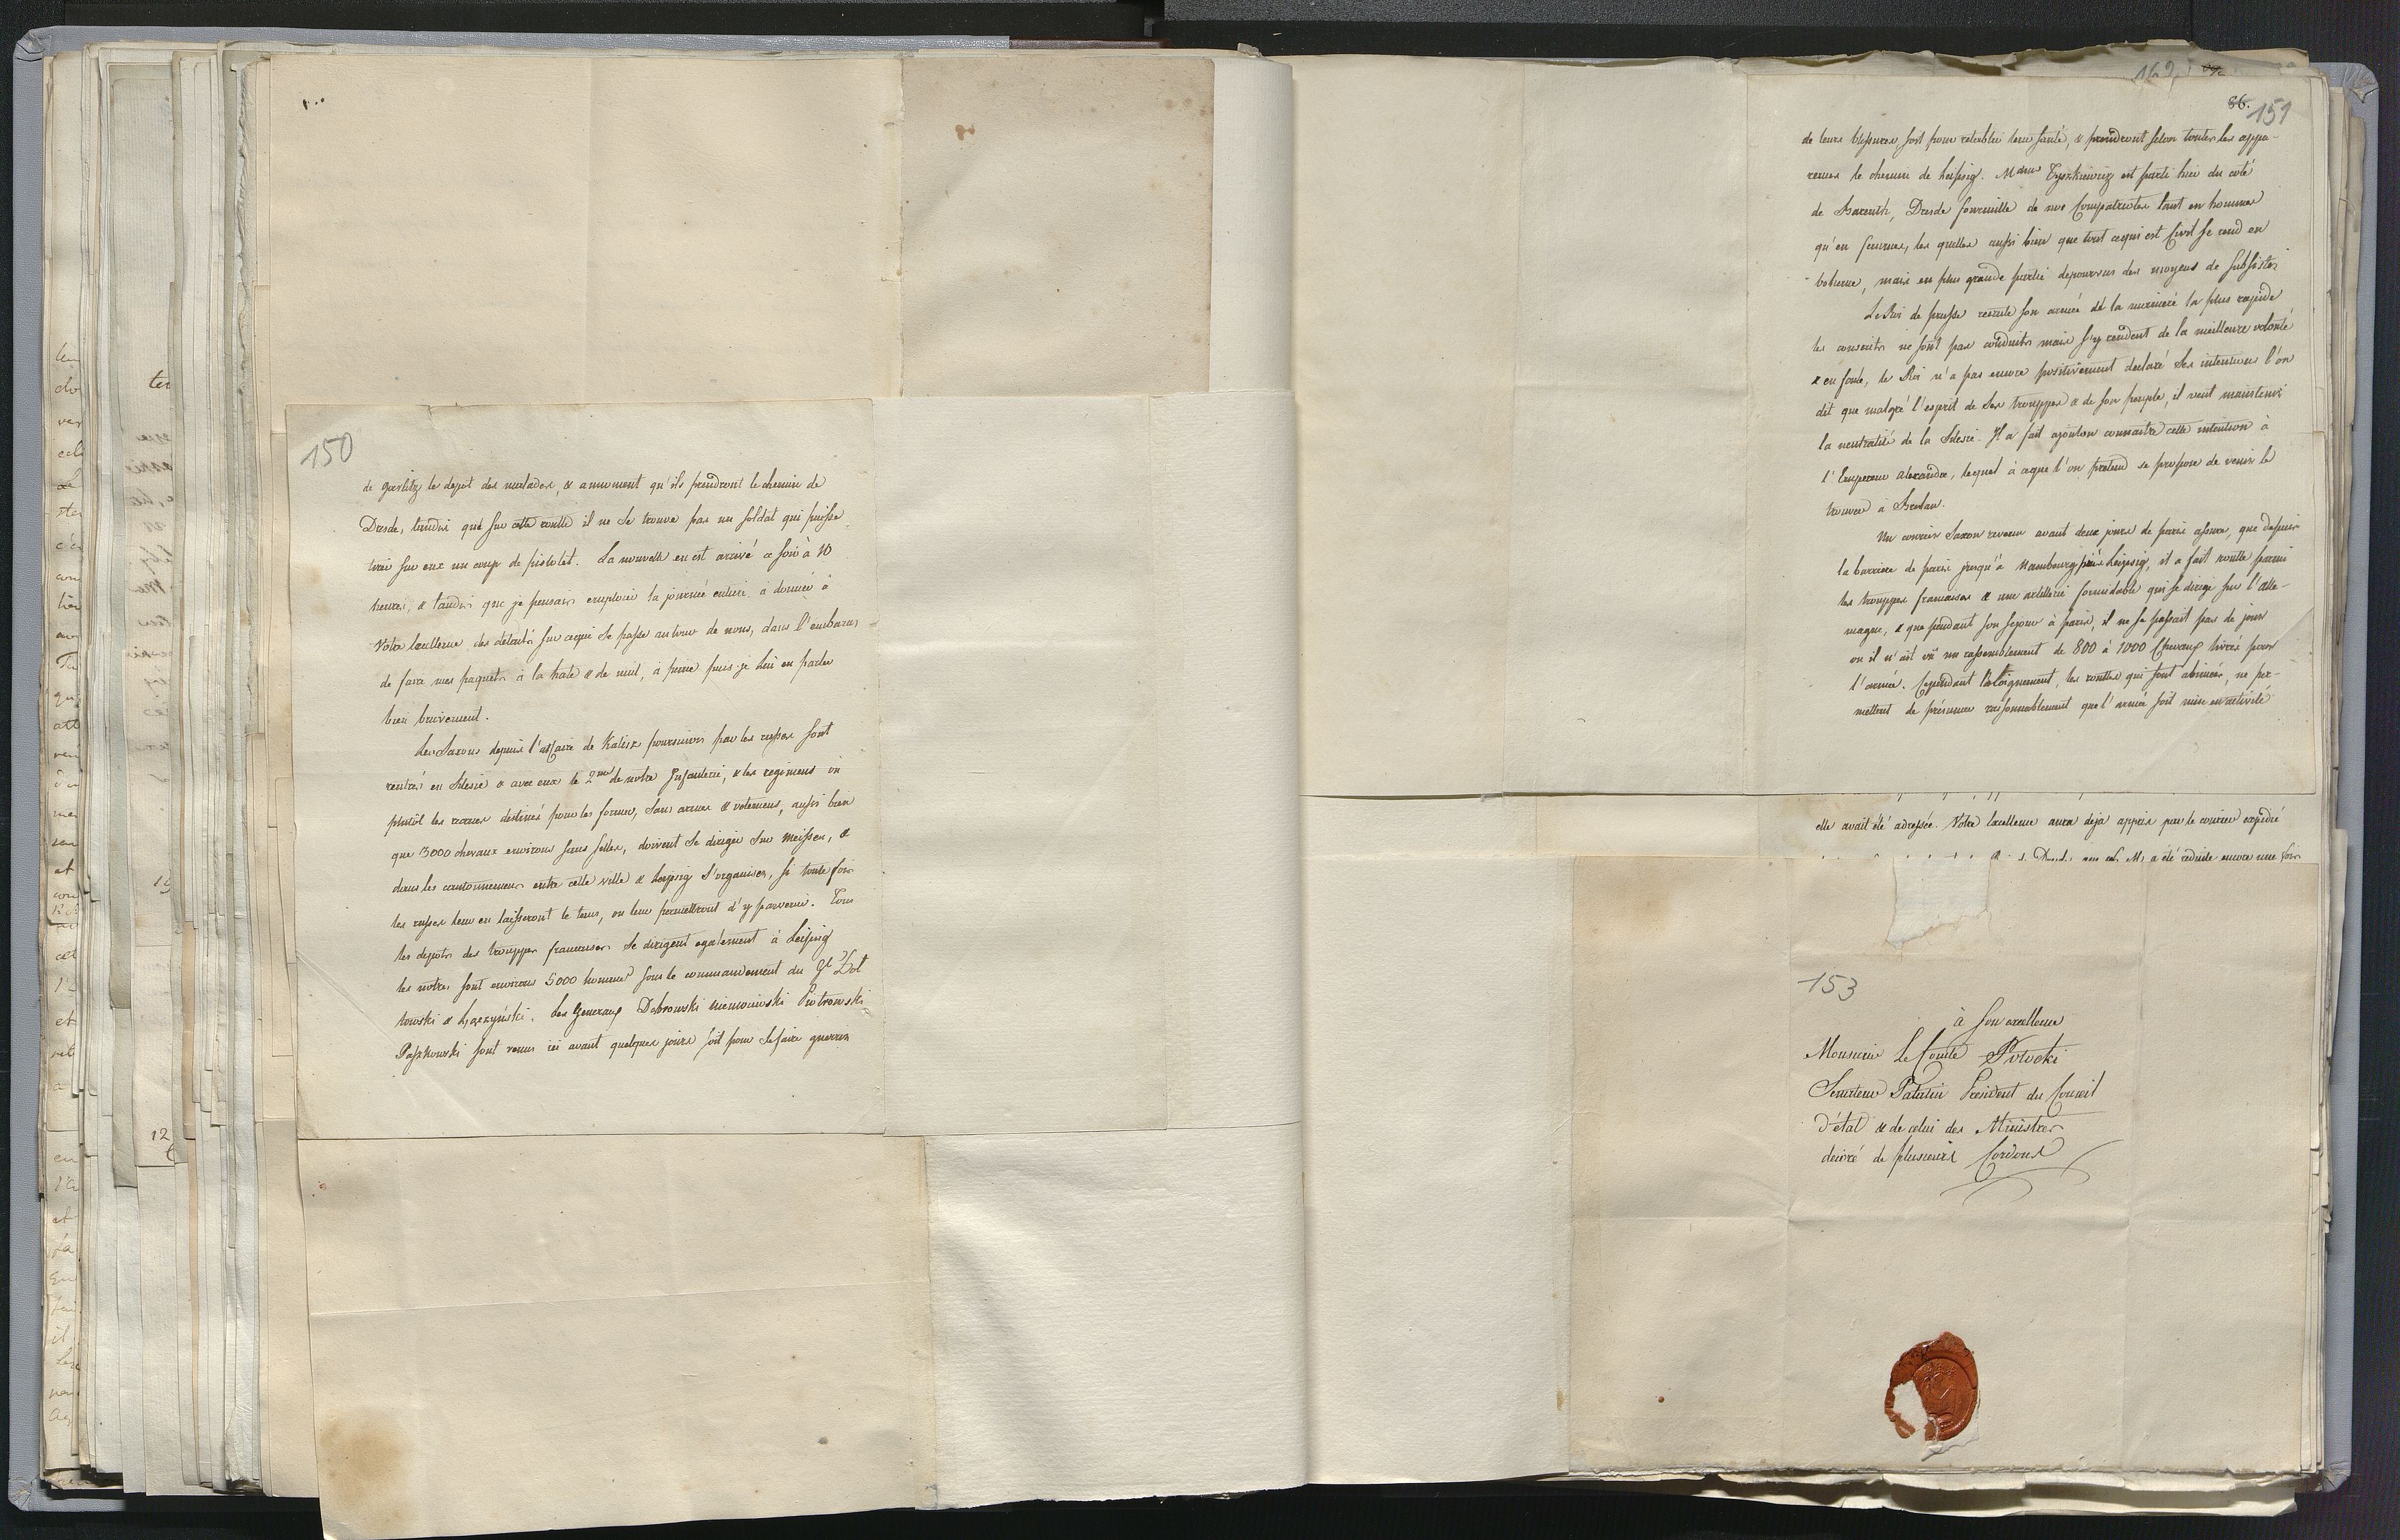 150
de Goerlitz le depot des malades, & annoncent qu'ils prendront le chemin de
Dresde, tandis que sur cette routte il ne se trouve pas un soldat qui puisse
tirer sur eux un coup de pistolet. La nouvelle en est arrivé ce soir à 10
heures, & tandis que je pensais emploier la journée entiere à donner à
Votre Excellence des détails sur cequi se passe autour de nous, dans l'embaras
de faire mes paquets à la hate & de nuit, à peine puis-je lui en parler
bien brievement.
Les Saxons depuis l'affaire de Kalisz poursuivis par les russes sont
rentrés en Silesie & avec eux le 2me de notre Infanterie, & les regimens ou
plustôt les recrues destinés pour les former, sans armes & vetemens, aussi bien
que 3000 chevaux environs sans selles, doivent se diriger sur Meissen, &
dans les cantonnemens entre cette ville & Leipsig s'organiser, si toute fois
les russes leur en laisseront le tems, ou leur permettront d'y parvenir. Tous
les depots des trouppes francaises se dirigent egalement à Leipsig
les notres sont environs 5000 hommes sous le commandement du Gl Zoł
towski & Łączyński. Les Generaux Dabrowski Kniemiewski Piotrowski
Paszkowski sont venus ici avant quelques jours soit pour se faire guerrir
162
86. 151
de leurs blessures soit pour retablir leur santé, & prendront selon toutes les appa-
rences le chemin de Leipsig. Mdme Tyszkiewicz est parti hier du coté
de Bareuth, Dresde fourmille de nos Compatriotes tant en hommes
qu'en femmes, les quelles aussi bien que tout cequi est Civil se rend en
boheme, mais en plus grande partie depourvus des moyens de subsister
Le Roi de prusse recrute son armée de la maniere la plus rapide
les conscrits ne sont pas conduits mais s'y rendent de la meilleure volonté
& en foule, le Roi n'a pas encore positivement declaré ses intentions l'on
dit que malgré l'esprit de ses trouppes & de son peuple, il veut maintenir
la neutralité de la Silesie. Il a fait ajouton connaitre cette intention à
l'Empereur Alexandre, lequel à ceque l'on pretend se propose de venir le
trouver à Breslau.
Un courrier Saxon revenu avant deux jours de paris assure, que depuis
la barriere de paris jusqu'à Naumbourg près Leipsig, il a fait routte parmi
les trouppes francaises & une artillerie formidable qui se dirige sur l'Alle-
magne, & que pendant son sejour à paris, il ne se passait pas de jour
ou il n'ait vû un rassemblement de 800 à 1000 Chevaux livrés pour
l'armée. Cependant l'eloignement, les routtes qui sont abimées, ne per-
mettent de présumer raisonnablement que l'armée soit mise en activité
elle avait été adressée. Votre Excellence aura deja appris par le courrier expedié
a été reduite encore une fois
153
à Son excellence
Monsieur Le Comte Potocki
Senateur Palatin President du Conseil
d'état & de celui des Ministres
decoré de plusieurs Cordons